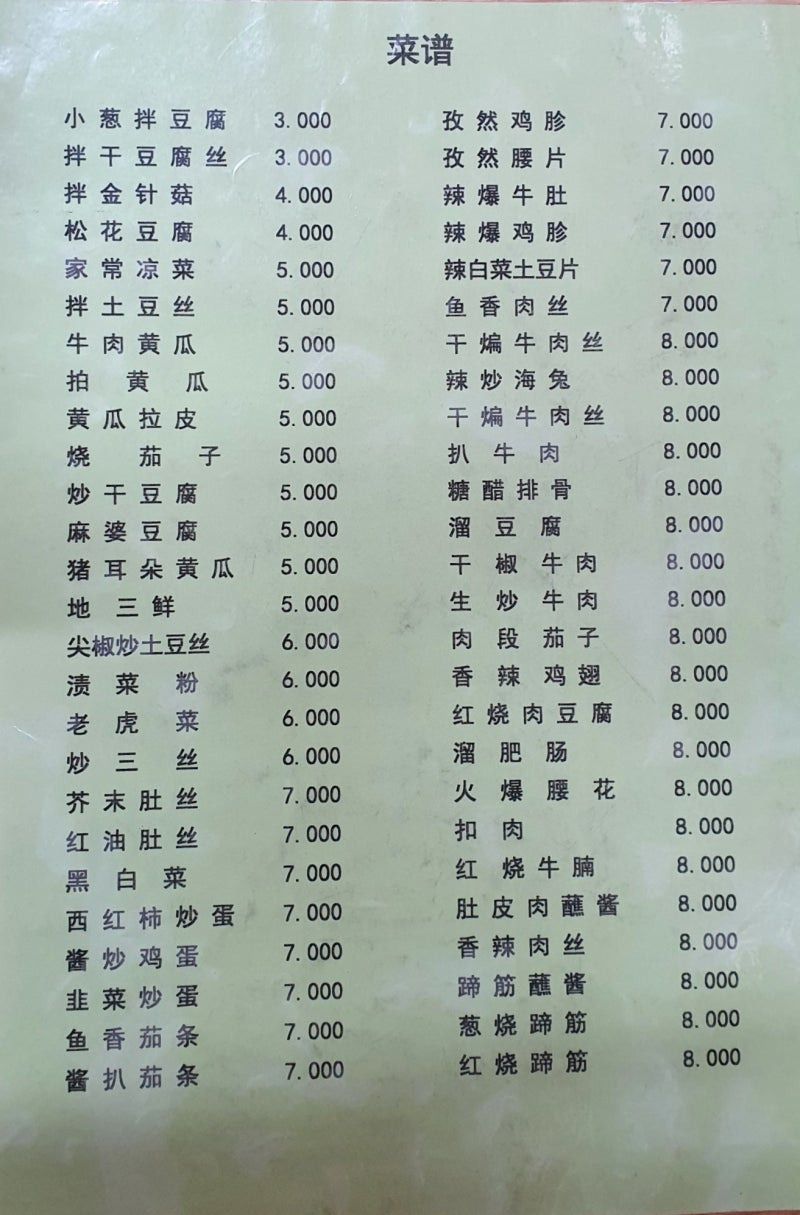 菜谱
小葱拌豆腐 3.000
拌干豆腐丝 3.000
拌金针菇 4.000
松花豆腐 4.000
家常凉菜 5.000
拌土豆丝 5.000
牛肉黄瓜 5.000
拍黄瓜 5.000
黄瓜拉皮 5.000
烧茄子 5.000
炒干豆腐 5.000
麻婆豆腐 5.000
猪耳朵黄瓜 5.000
地三鲜 5.000
尖椒炒土豆丝 6.000
渍菜粉 6.000
老虎菜 6.000
炒三丝 6.000
芥末肚丝 7.000
红油肚丝 7.000
黑白菜 7.000
西红柿炒蛋 7.000
酱炒鸡蛋 7.000
韭菜炒蛋 7.000
鱼香茄条 7.000
酱扒茄条 7.000
孜然鸡胗 7.000
孜然腰片 7.000
辣爆牛肚 7.000
辣爆鸡胗 7.000
辣白菜土豆片 7.000
鱼香肉丝 7.000
干煸牛肉丝 8.000
辣炒海兔 8.000
干煸牛肉丝 8.000
扒牛肉 8.000
糖醋排骨 8.000
溜豆腐 8.000
干椒牛肉 8.000
生炒牛肉 8.000
肉段茄子 8.000
香辣鸡翅 8.000
红烧肉豆腐 8.000
溜肥肠 8.000
火爆腰花 8.000
扣肉 8.000
红烧牛腩 8.000
肚皮肉蘸酱 8.000
香辣肉丝 8.000
蹄筋蘸酱 8.000
葱烧蹄筋 8.000
红烧蹄筋 8.000